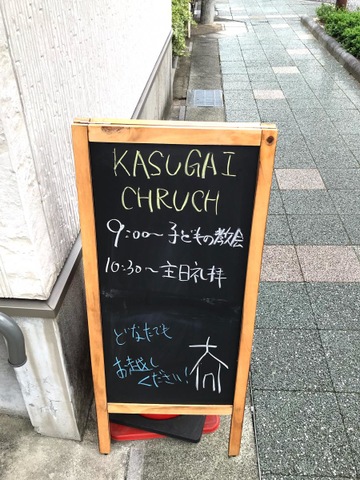 KASUGAI
CHRUCH
9:00~子どもの教会
10:30~主日礼拝
どなたでも
お越し
ください!